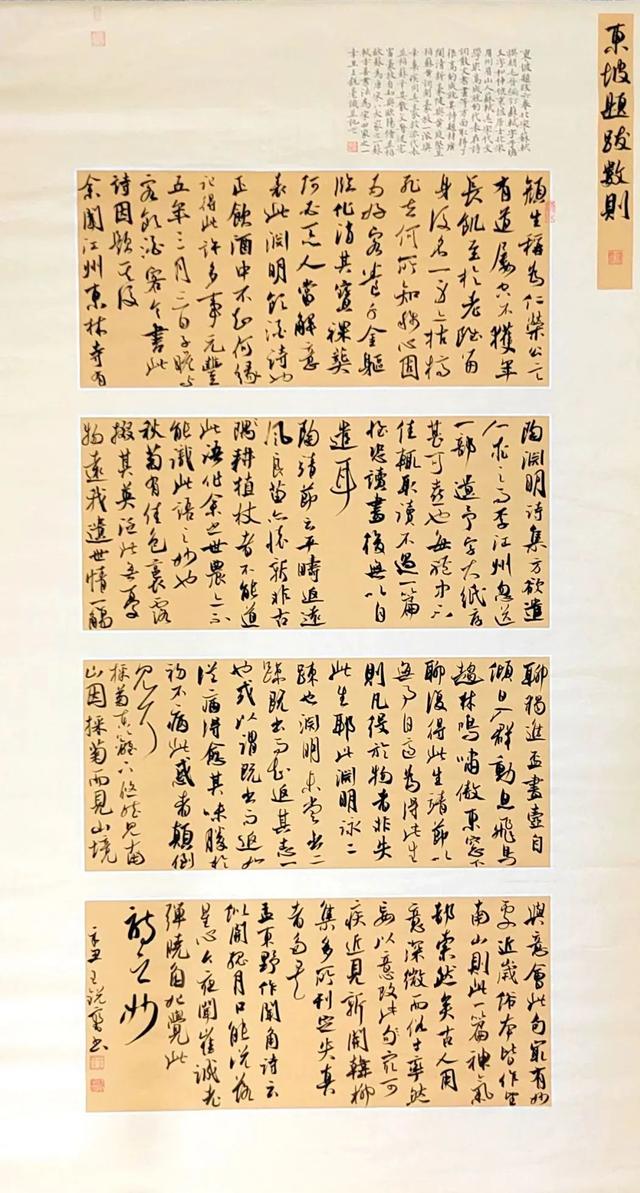 東坡題跋數則
東坡題跋六卷北宋蘇軾
撰明毛晉編訂蘇軾字子瞻
顏生稱為仁榮公言
有道屢空不獲年
長飢至於老雖留
身後名一生亦枯槁
死去何所知稱心固
為好客養千金軀
臨化消其寶裸葬
何必惡人當解意
表此淵明飲酒詩也
正飲酒中不知何緣
記得此許多事元豐
五年三月三日子瞻與
客飲酒客令書此
詩因題其後
余聞江州東林寺有
陶淵明詩集方欲遣
人求之而李江州忽送
一部遺予字大紙厚
甚可喜也每體中不
佳輒取讀不過一篇
惟恐讀書後無以自
遣耳
陶靖節云平疇返遠
風良苗亦懷新非古
耦耕植杖者不能道
此語非余之世農亦不
能識此語之妙也
秋菊有佳色裛露
掇其英泛此忘憂
物遠我遺世情一觴
聊獨進盃盡壺自
傾日入群動息飛鳥
趨林鳴嘯傲東窗下
聊復得此生靖節以
無事自適為得此生
則凡役於物者非失
此生耶此淵明詠二
疎也淵明未嘗出二
疎既出而知返其志一
也或以謂既出而返如
從病得愈其味勝於
初不病此惑者顛倒
見耳
採菊東籬下悠然見南
山因採菊而見山境
與意會此句最有妙
處近歲俗本皆作望
南山則此一篇神氣
都索然矣古人用
意深微而俗士率然
妄以意改此句最可
疾近見新開韓柳
集多所刊定失真
者多矣
孟東野作聞角詩云
似開孤月口能說落
星心今夜聞崔誠老
彈曉角始覺此
詩之妙
辛丑王銳書